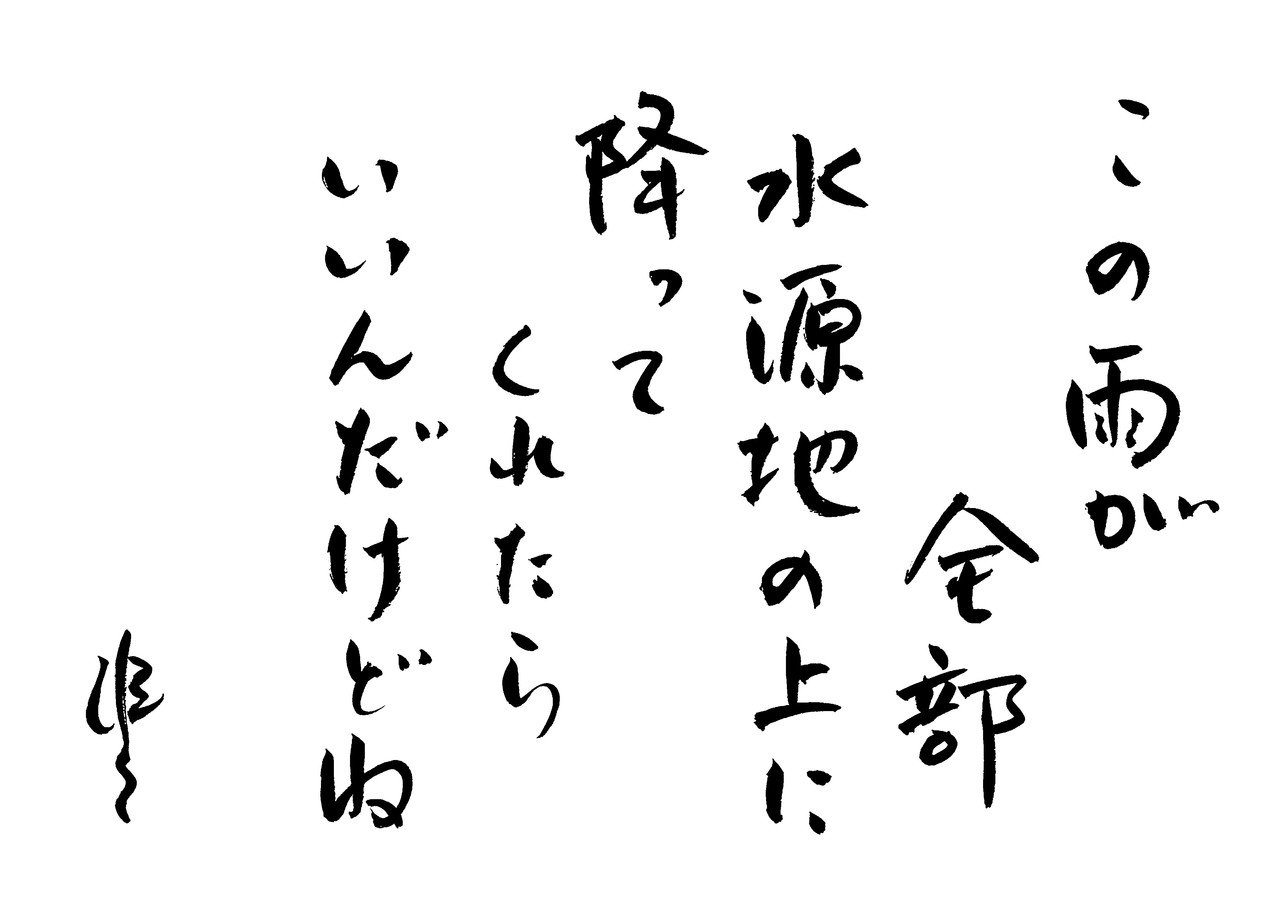 この雨が
全部
水源地の上に
降って
くれたら
いいんだけどね